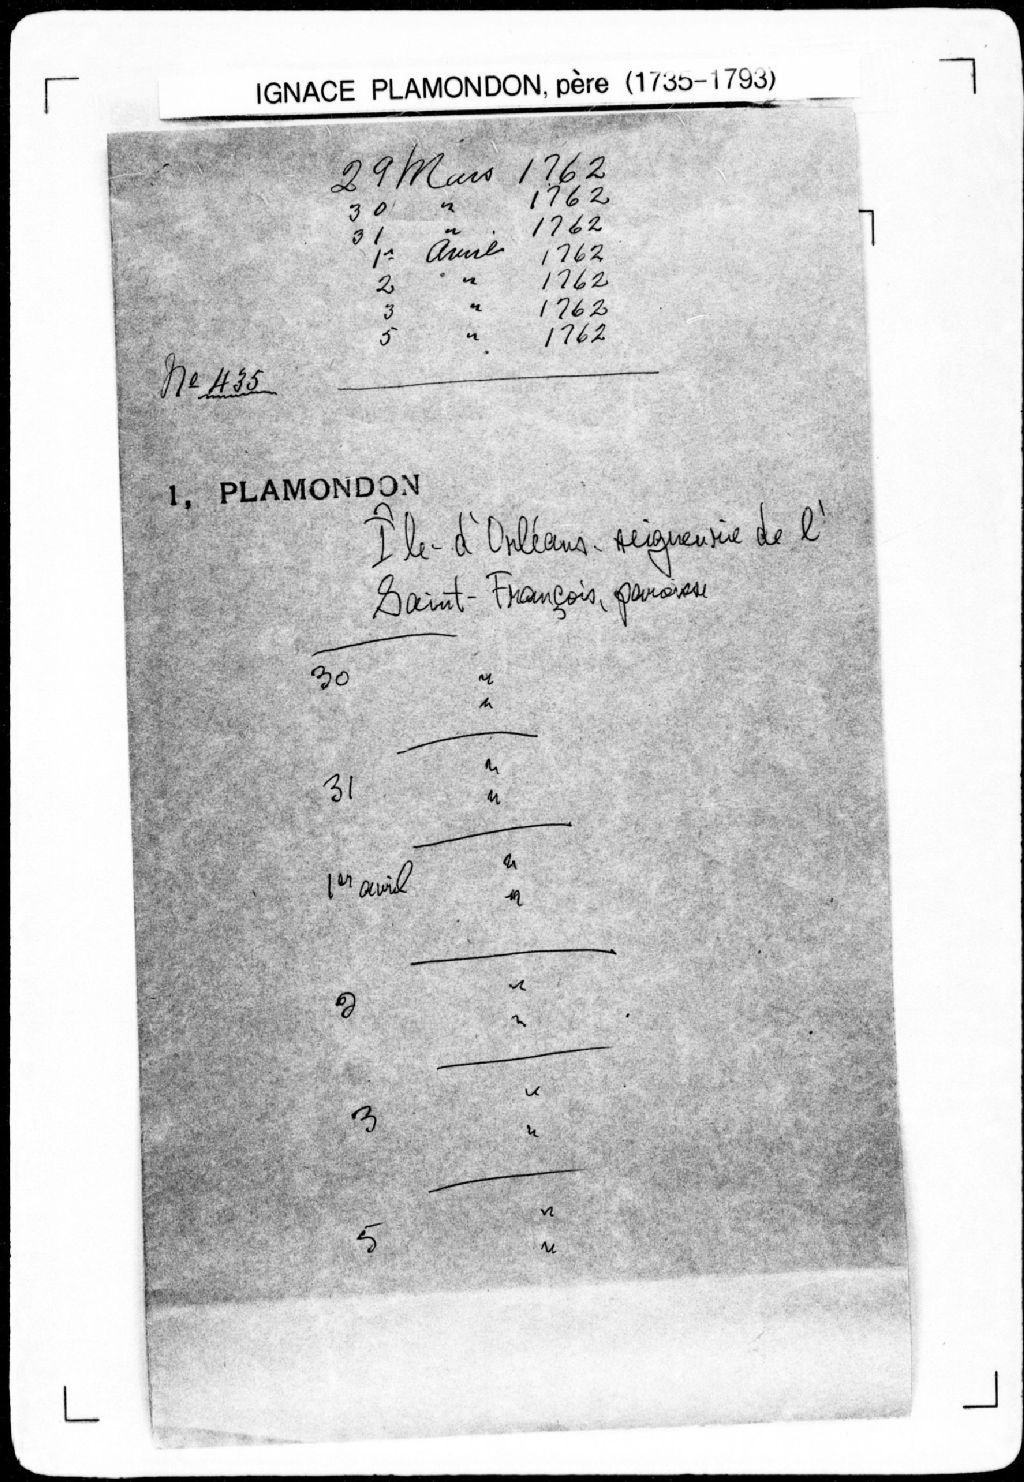 IGNACE PLAMONDON, père (1735-1793)
29 Mars 1762
30 " 1762
31 " 1762
1er Avril 1762
2 " 1762
3 " 1762
5 " 1762
No 435
1, PLAMONDON
Île-d'Orléans, seigneurie de l'
Saint-François, paroisse
30 "
"
31 "
"
1er avril "
"
2 "
"
3 "
"
5 "
"